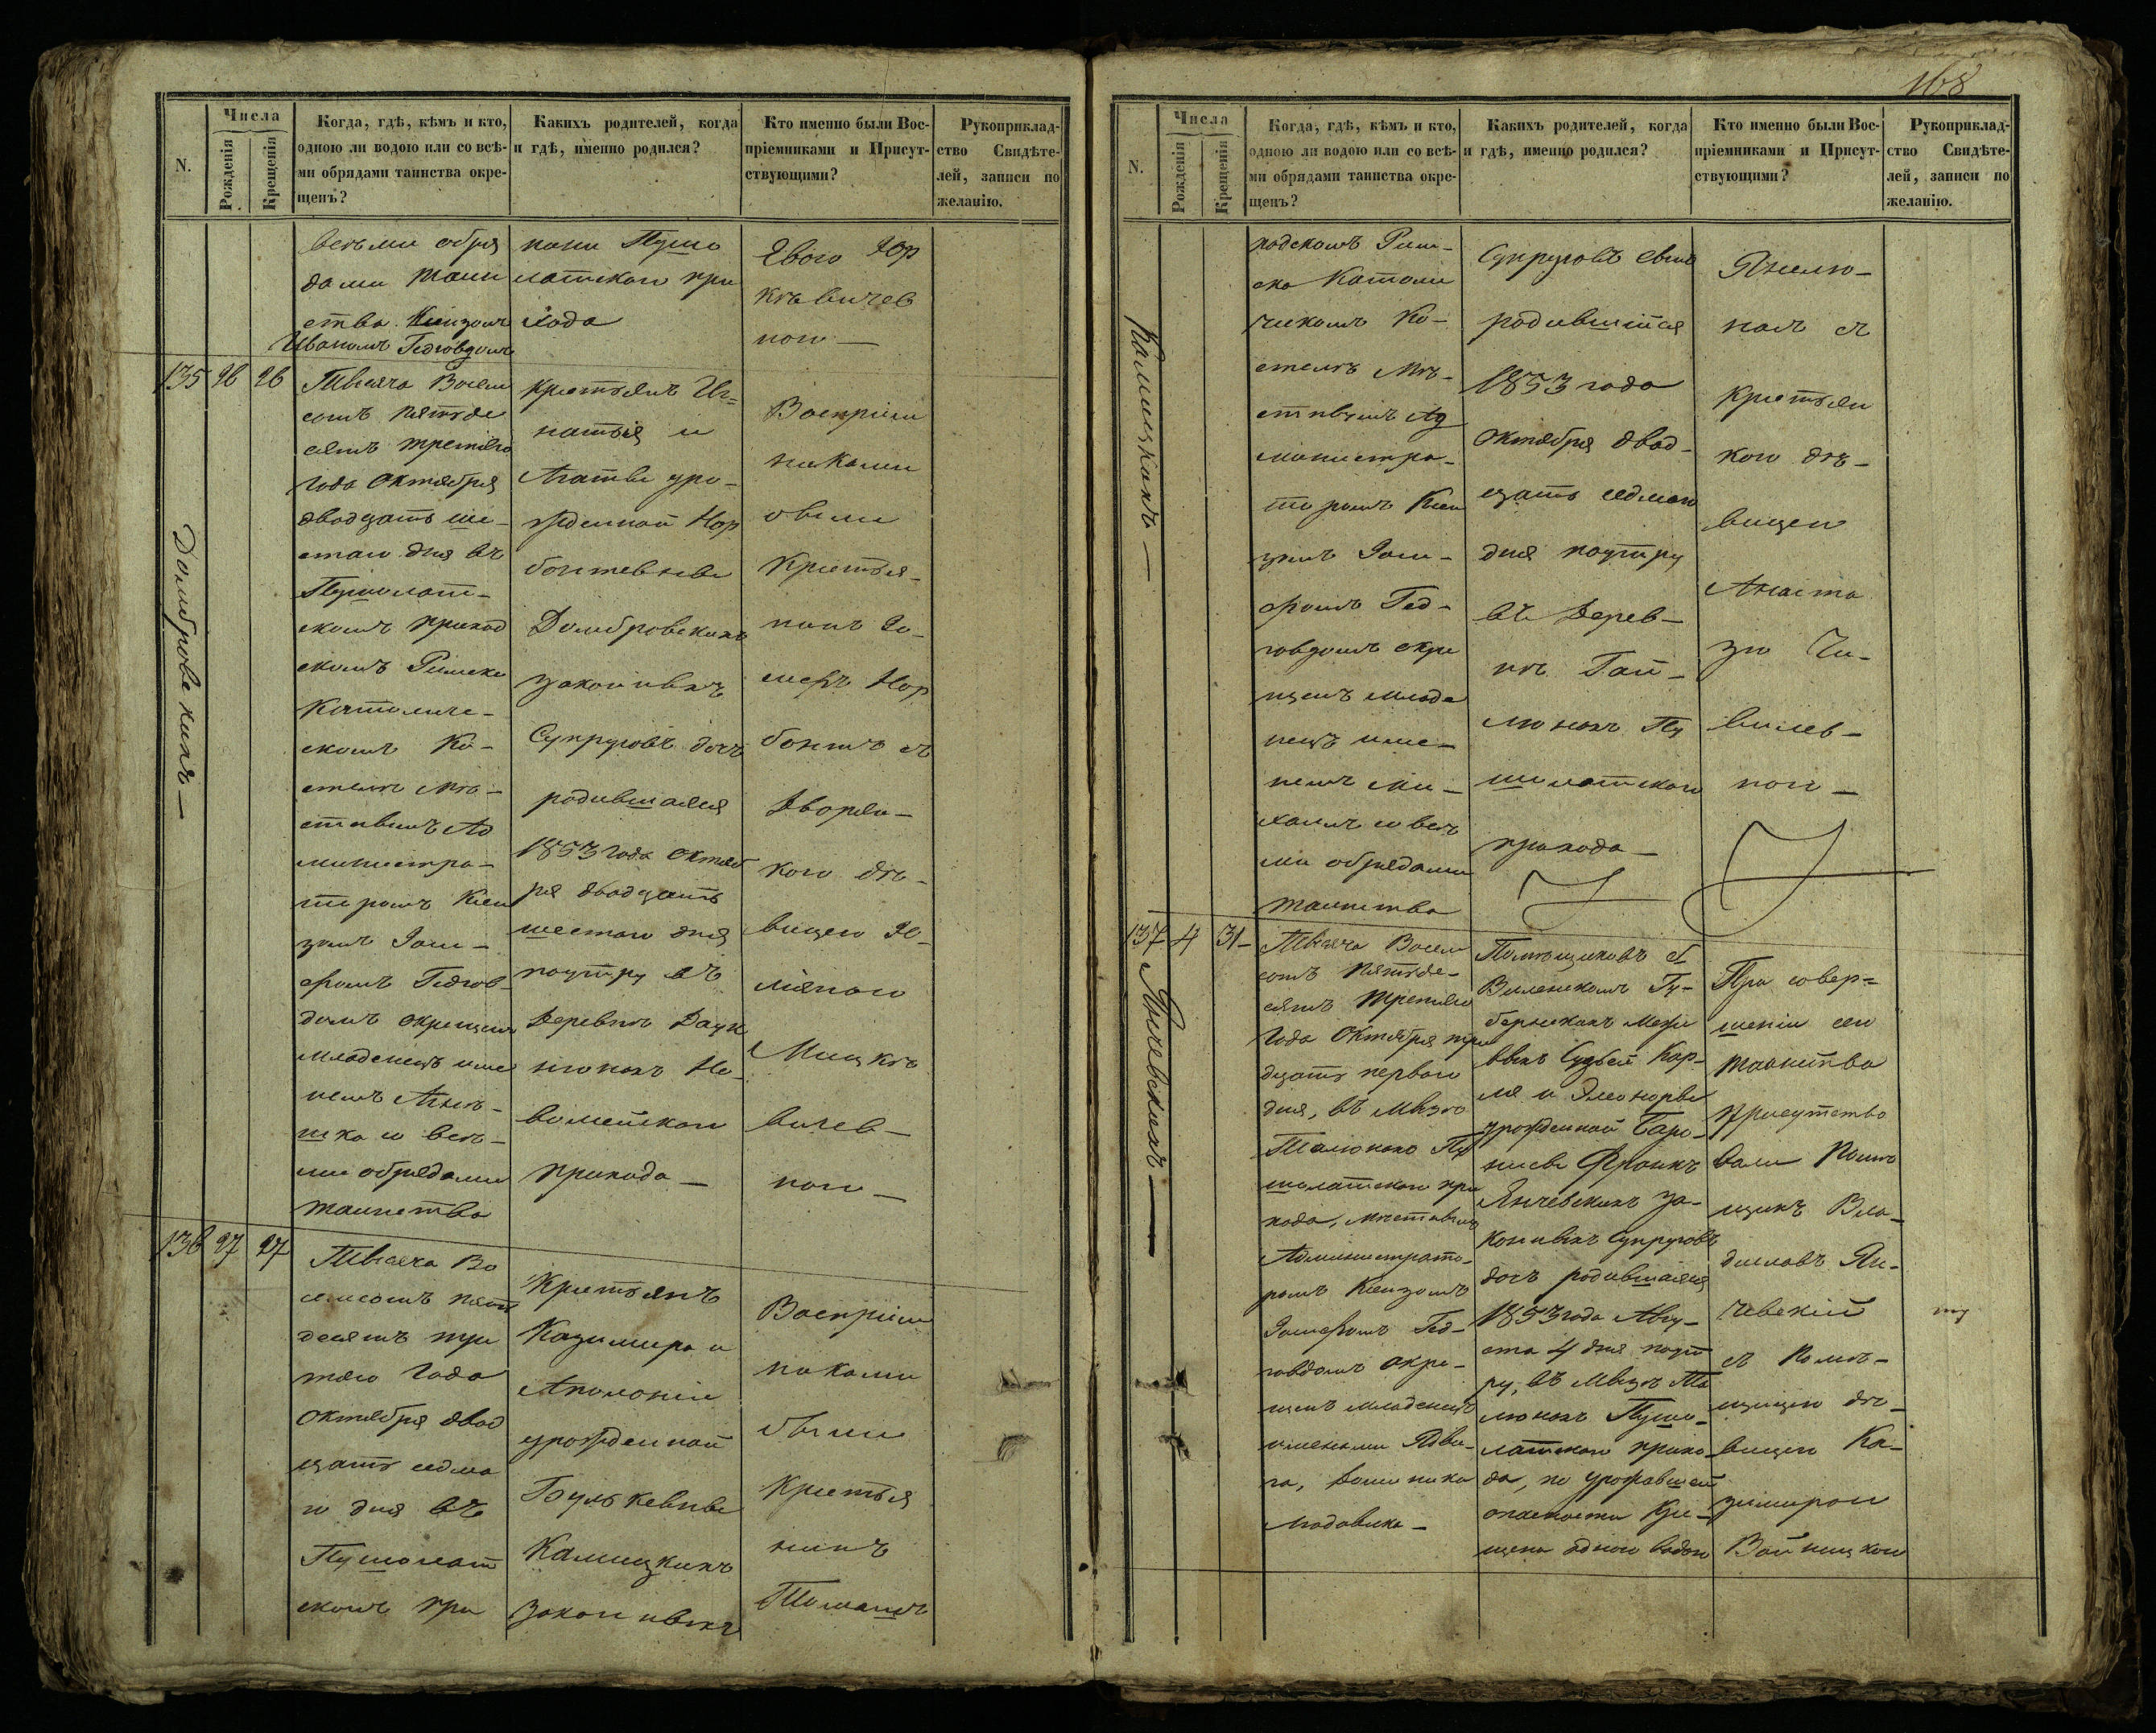 N.
Числа
Рожденія
Крещенія
Когда, гдѣ, кѣмъ и кто,
одною ли водою или со всѣ-
ми обрядами таинства окре-
щенъ?
Какихъ родителей, когда
и гдѣ, именно родился?
Кто именно были Вос-
пріемниками и Присут-
ствующими?
Рукоприклад-
ство Свидѣте-
лей, записи по
желанію.
всѣми обря
дами таин
ства Ксіндзомъ
пани Пушо
латскаго при
хода
вною
135 26 26
Домбровскихъ—
Тысяча Восем
сотъ пятьде
сятъ третяго
года Октября
двадцать ше-
стаго дня въ
Пушолат-
скомъ приход
скомъ Римско
Католиче-
скомъ Ко-
стелѣ Мѣ-
стнымъ Ад
министра-
торомъ Ксен
дзомъ Іози-
фомъ Гедгов-
домъ окрещенъ
младенецъ име
немъ Агнѣ-
шка со всѣ-
ми обрядами
таинства
Крестьянъ Иг-
натія и
Агаты уро-
жденной Нар
Домбровскихъ
законныхъ
Супруговъ дочь
родившаяся
1853 года Октяб
ря двадцать
шестаго дня
поутру въ
Деревнѣ
прихода —
Воспріем
никами
были
Крестья-
нинъ Іо-
зефъ Нар
бонтъ съ
Дворян-
кою дѣ-
вицею Ю-
ліяною
Мицкѣ
вичев-
ною —
136 27 27
Тысяча Во
семсотъ пять
десятъ тре
тяго года
Октября двад
цать седма
го дня въ
Пушолат
скомъ при
Крестьянъ
Казимира и
Аполоніи
урожденной
Булькевны
Камицкихъ
законныхъ
Воспріем
никами
были
Крестья
нинъ
Томашъ
168
N.
Числа
Рожденія
Крещенія
Когда, гдѣ, кѣмъ и кто,
одною ли водою или со всѣ-
ми обрядами таинства окре-
щенъ?
Какихъ родителей, когда
и гдѣ, именно родился?
Кто именно были Вос-
пріемниками и Присут-
ствующими?
Рукоприклад-
ство Свидѣте-
лей, записи по
желанію.
Камицкихъ —
ходскомъ Рим-
ско Католи
ческомъ Ко-
стелѣ Мѣ-
стнымъ Ад
министра-
торомъ Ксен
дзомъ Іози-
фомъ Гед-
говдомъ окре
щенъ младе
нецъ име-
немъ Ми-
халъ со всѣ
ми обрядами
таинства
Супруговъ сынъ
родившійся
1853 года
Октября двад-
цать седмаго
дня поутру
въ Дерев-
нѣ Гай-
люнахъ Пу
шолатскаго
прихода —
съ
Крестьян
кою дѣ-
вицею
Анаста
зію
ною —
137 4 31
Янчевскихъ —
Тысяча Восем
сотъ пятьде-
сятъ третяго
Года Октября три
дцать перваго
дня, въ Мызѣ
Талюнахъ Пу
шолатскаго при
хода, Мѣстнымъ
Администрато-
ромъ Ксендзомъ
Іозифомъ Гед-
говдомъ окре-
щенъ младенецъ
именами Ядви-
га, Доминика
Людовика —
Помѣщиковъ съ
Виленскомъ Гу-
бернскихъ Меже
выхъ Судьей Кар-
ля и Элеоноры
урожденной Баро-
нисы Франкъ
Янчевскихъ за-
конныхъ Супруговъ
дочь родившаяся
1853 года Авгу-
ста 4 дня поут
ру, въ Мызѣ Та
люнахъ Пушо-
латскаго прихо
да, по угрожавшей
опасности кре-
щена одною водою
При совер-
шеніи сего
таинства
присутство
вали Помѣ
щикъ Вла-
диславъ Ян-
чевскій
съ Помѣ-
щицею дѣ-
вицею Ка-
зимирою
Войницкою